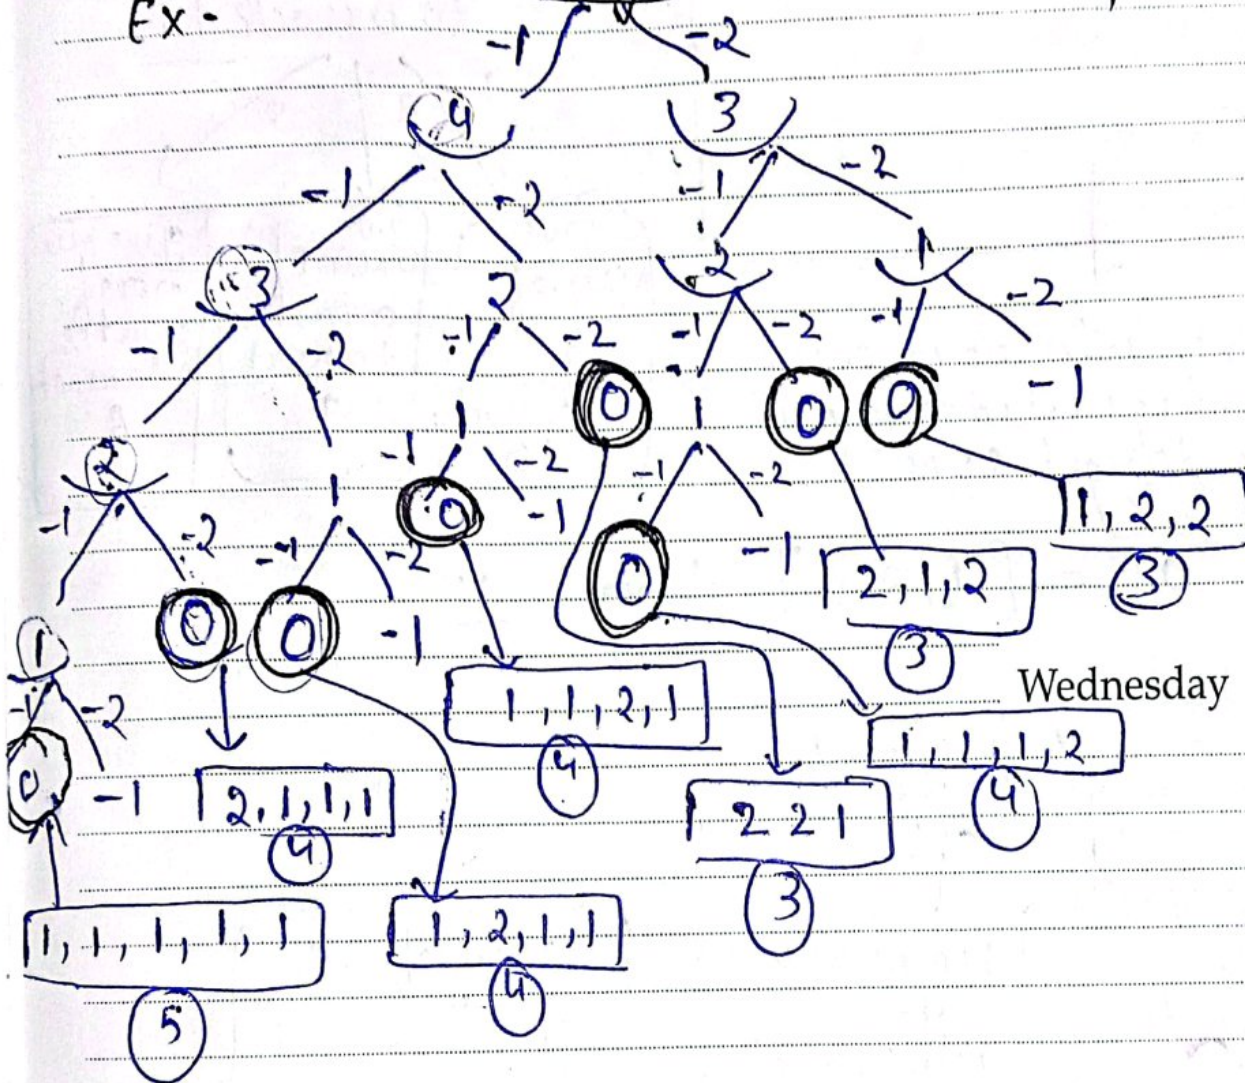 Ex-
-1 -2
4 3
-1 -2 -1 -2
3 2 2 1
-1 -2 -1 -2 -1 -2 -1 -2
2 1 1 0 1 0 0 -1
-1 -2 -1 -2 -1 -2 -1 -2
1 0 0 -1 0 -1 0 -1
-1 -2
0 -1
1, 2, 2
3
2, 1, 2
3
1, 1, 2, 1
4
Wednesday
1, 1, 1, 2
4
2, 1, 1, 1
4
2 2 1
3
1, 1, 1, 1, 1
5
1, 2, 1, 1
4